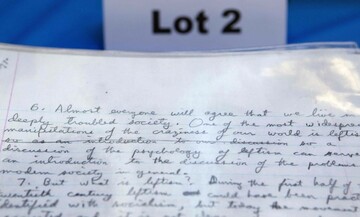 Lot 2
6. Almost everyone will agree that we live in
deeply troubled society. One of the most widespread
manifestations of the craziness of our world is leftis
so as an introduction to our discussion so a
discussion of the psychology of leftism can serve as
an introduction to the discussion of the problems
modern society in general.
7. But what is leftism? During the first half of
century leftism could have been prac
identified with socialism, but today the movement